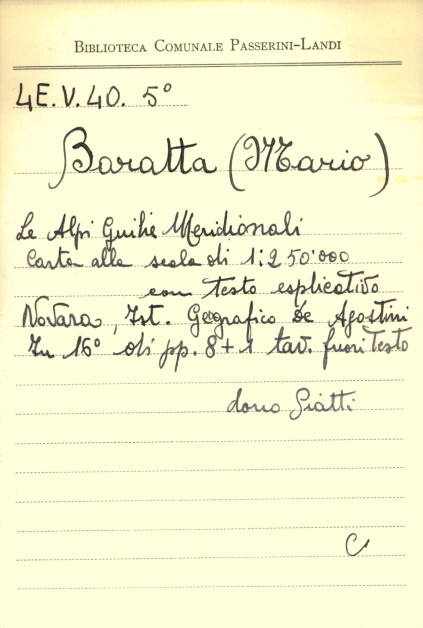 BIBLIOTECA COMUNALE PASSERINI-LANDI
4E.V.40. 5°
Baratta (Mario)
Le Alpi Giulie Meridionali
Carta alla scala di 1:250'000
con testo esplicativo
Novara, Ist. Geografico De Agostini
In 16° di pp. 8+1 tav. fuori testo
dono
C